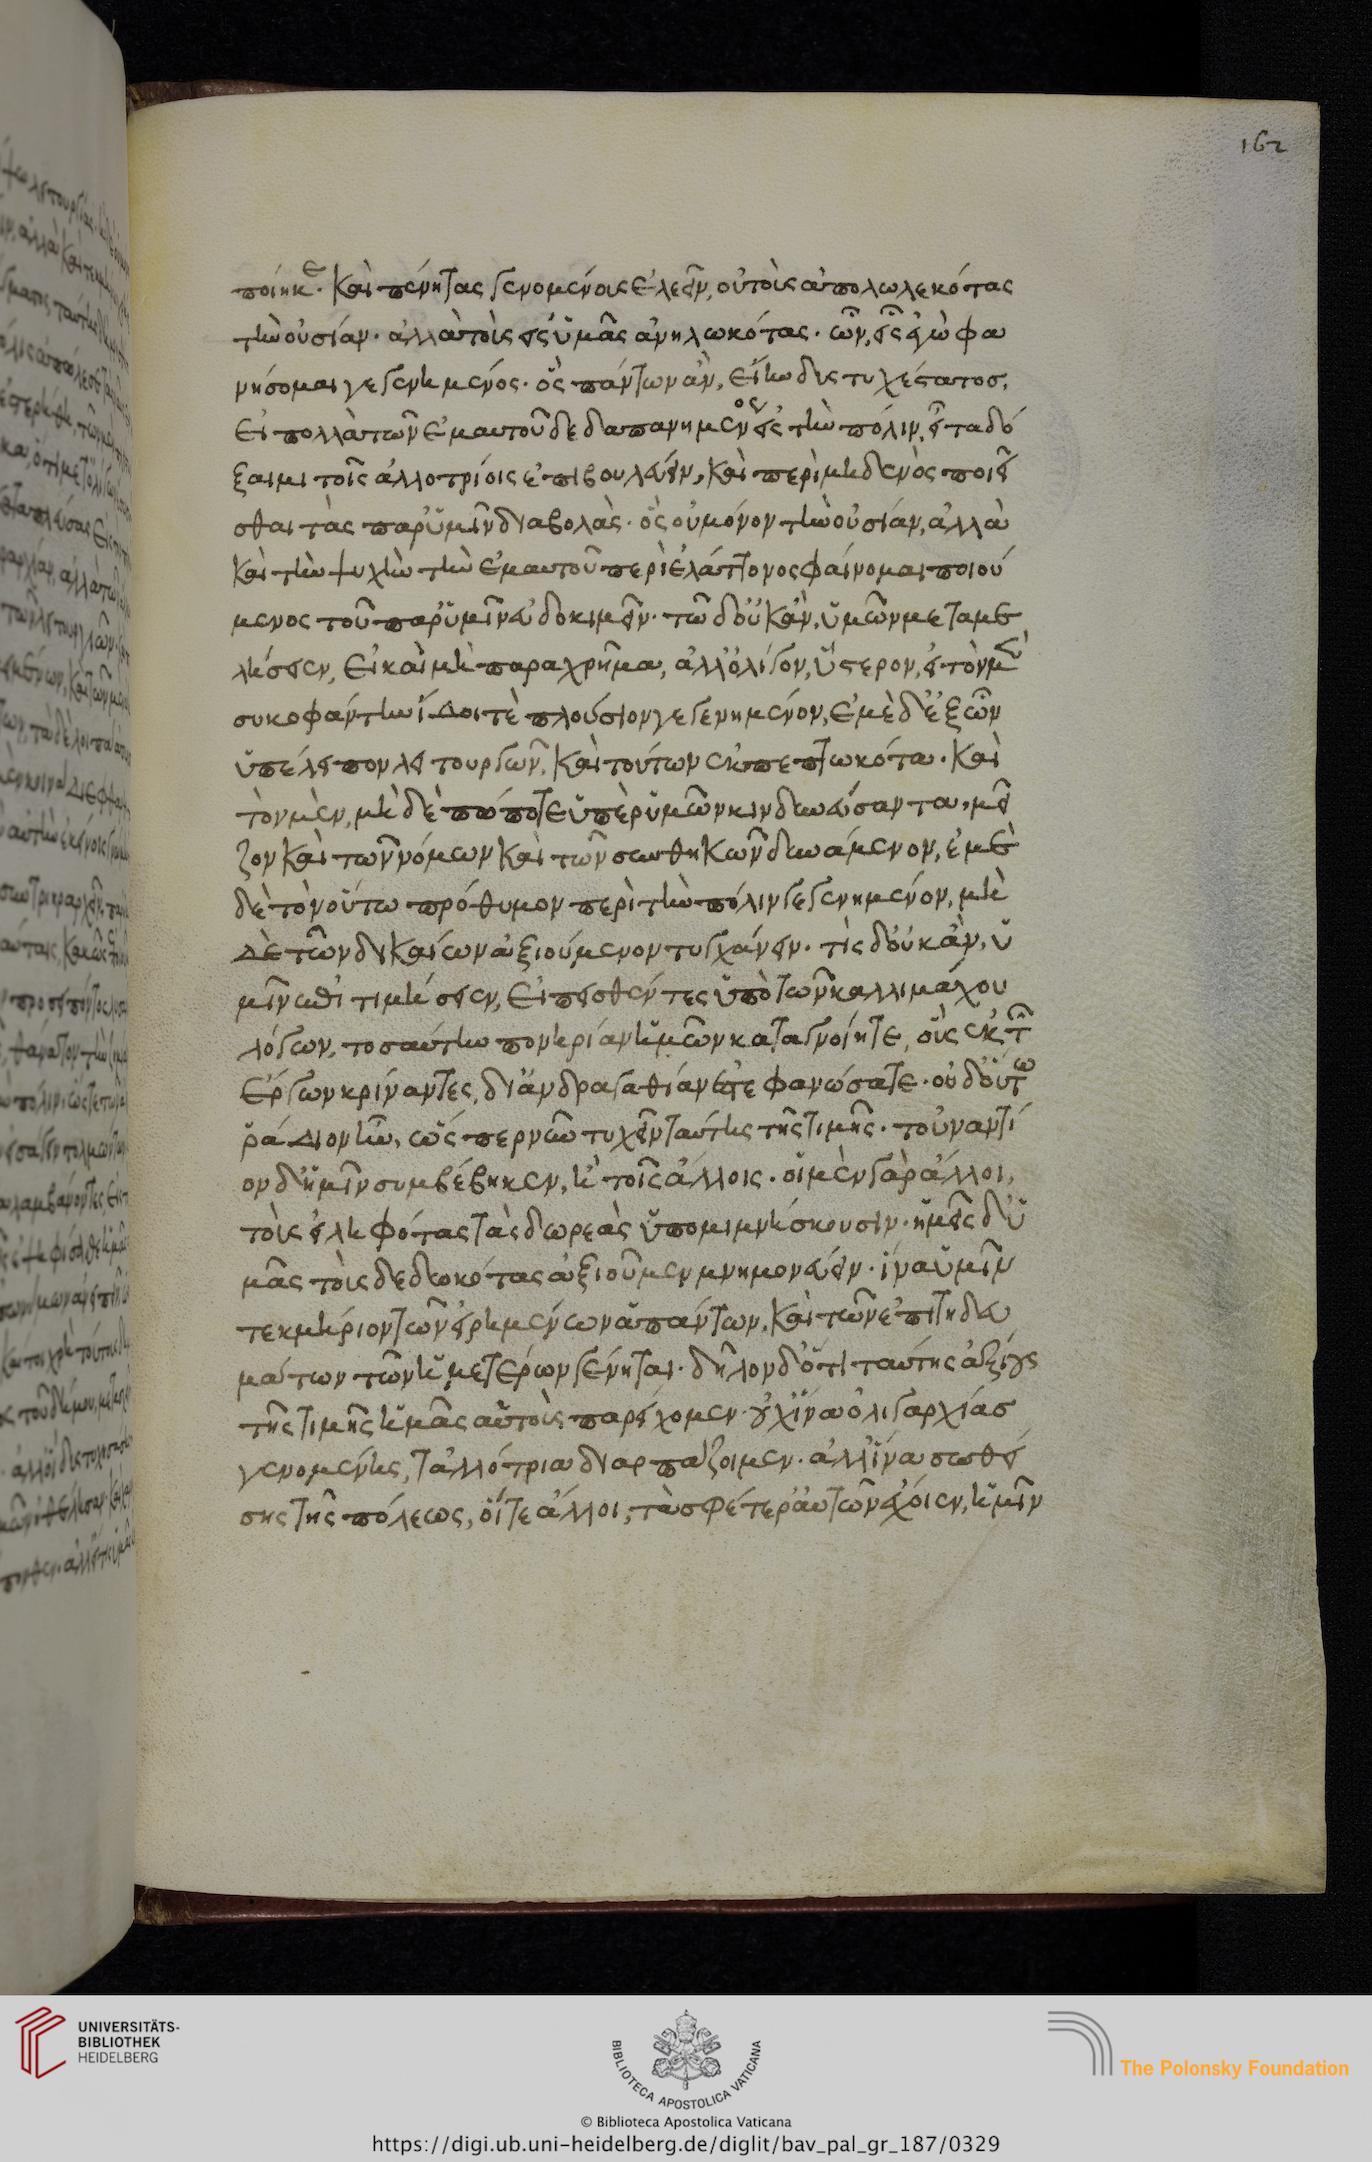 162
ποίηκε. καὶ πένητας γενομένοις ἐλεεῖν, οὐ τοῖς ἀπολωλεκότας
τὴν οὐσίαν. ἀλλὰ τοῖς εἰς ὑμᾶς ἀνηλωκότας. ὧν, εἷς ἐγὼ φα
νήσομαι γεγενημένος. ὃς πάντων ἂν, εἴην δυστυχέστατος,
εἰ πολλὰ τῶν ἐμαυτοῦ δεδαπανημένος εἰς τὴν πόλιν, εἶτα δό
ξαιμι τοῖς ἀλλοτρίοις ἐπιβουλεύειν, καὶ περὶ μηδενὸς ποιεῖ
σθαι τὰς παρ' ὑμῖν διαβολὰς. ὃς οὐ μόνον τὴν οὐσίαν, ἀλλὰ
καὶ τὴν ψυχὴν τὴν ἐμαυτοῦ περὶ ἐλάττονος φαίνομαι ποιού
μενος τοῦ παρ' ὑμῖν εὐδοκιμεῖν. τῶ δ' οὐκ ἂν, ὑμῶν μεταμε
λήσειεν, εἰ καὶ μὴ παραχρῆμα, ἀλλ' ὀλίγον, ὕστερον, εἰ τὸν μὲν
συκοφάντην ἴδοιτε πλούσιον γεγενημένον, ἐμὲ δ' ἐξ ὧν
ὑπέλειπον λειτουργῶν, καὶ τούτων ἐκπεπτωκότα. καὶ
τὸν μὲν, μὴ δὲ πώποτε ὑπὲρ ὑμῶν κινδυνεύσαντα, μεῖ
ζον καὶ τῶν νόμων καὶ τῶν συνθηκῶν δυνάμενον, ἐμὲ
δὲ τὸν οὕτω πρόθυμον περὶ τὴν πόλιν γεγενημένον, μὴ
δὲ τῶν δικαίων ἀξιούμενον τυγχάνειν. τὶς δ' οὐκ ἂν, ὑ
μῖν ἐπιτιμήσειεν, εἰ πεισθέντες ὑπὸ τῶν καλλιμάχου
λόγων, τοσαύτην πονηρίαν ἡμῶν καταγνοίητε, οὓς ἐκ τῶν
ἔργων κρίναντες, δι' ἀνδραγαθίαν ἐστεφανώσατε. οὐδ' οὕτω
ῥάδιον ἦν, ὥσπερ νῦν τυχεῖν ταύτης τῆς τιμῆς. τοὐναντί
ον δ' ἡμῖν συμβέβηκεν, ἢ τοῖς ἄλλοις. οἱ μὲν γὰρ ἄλλοι,
τοὺς εἰληφότας τὰς δωρεὰς ὑπομιμνήσκουσιν. ἡμεῖς δ' ὑ
μᾶς τοὺς δεδωκότας ἀξιοῦμεν μνημονεύειν. ἵνα ὑμῖν
τεκμήριον τῶν εἰρημένων ἁπάντων, καὶ τῶν ἐπιτηδευ
μάτων τῶν ἡμετέρων γένηται. δῆλον δ' ὅτι ταύτης ἀξίους
τῆς τιμῆς ἡμᾶς αὐτοὺς παρείχομεν. οὐχ ἵνα ὀλιγαρχίας
γενομένης, τἀλλότρια διαρπάζοιμεν. ἀλλ' ἵνα σωθεί
σης τῆς πόλεως, οἵ τε ἄλλοι, τὰ σφέτερ' αὐτῶν ἔχοιεν, ἡμῖν
UNIVERSITÄTS-
BIBLIOTHEK
HEIDELBERG
BIBLIOTECA APOSTOLICA VATICANA
The Polonsky Foundation
© Biblioteca Apostolica Vaticana
https://digi.ub.uni-heidelberg.de/diglit/bav_pal_gr_187/0329